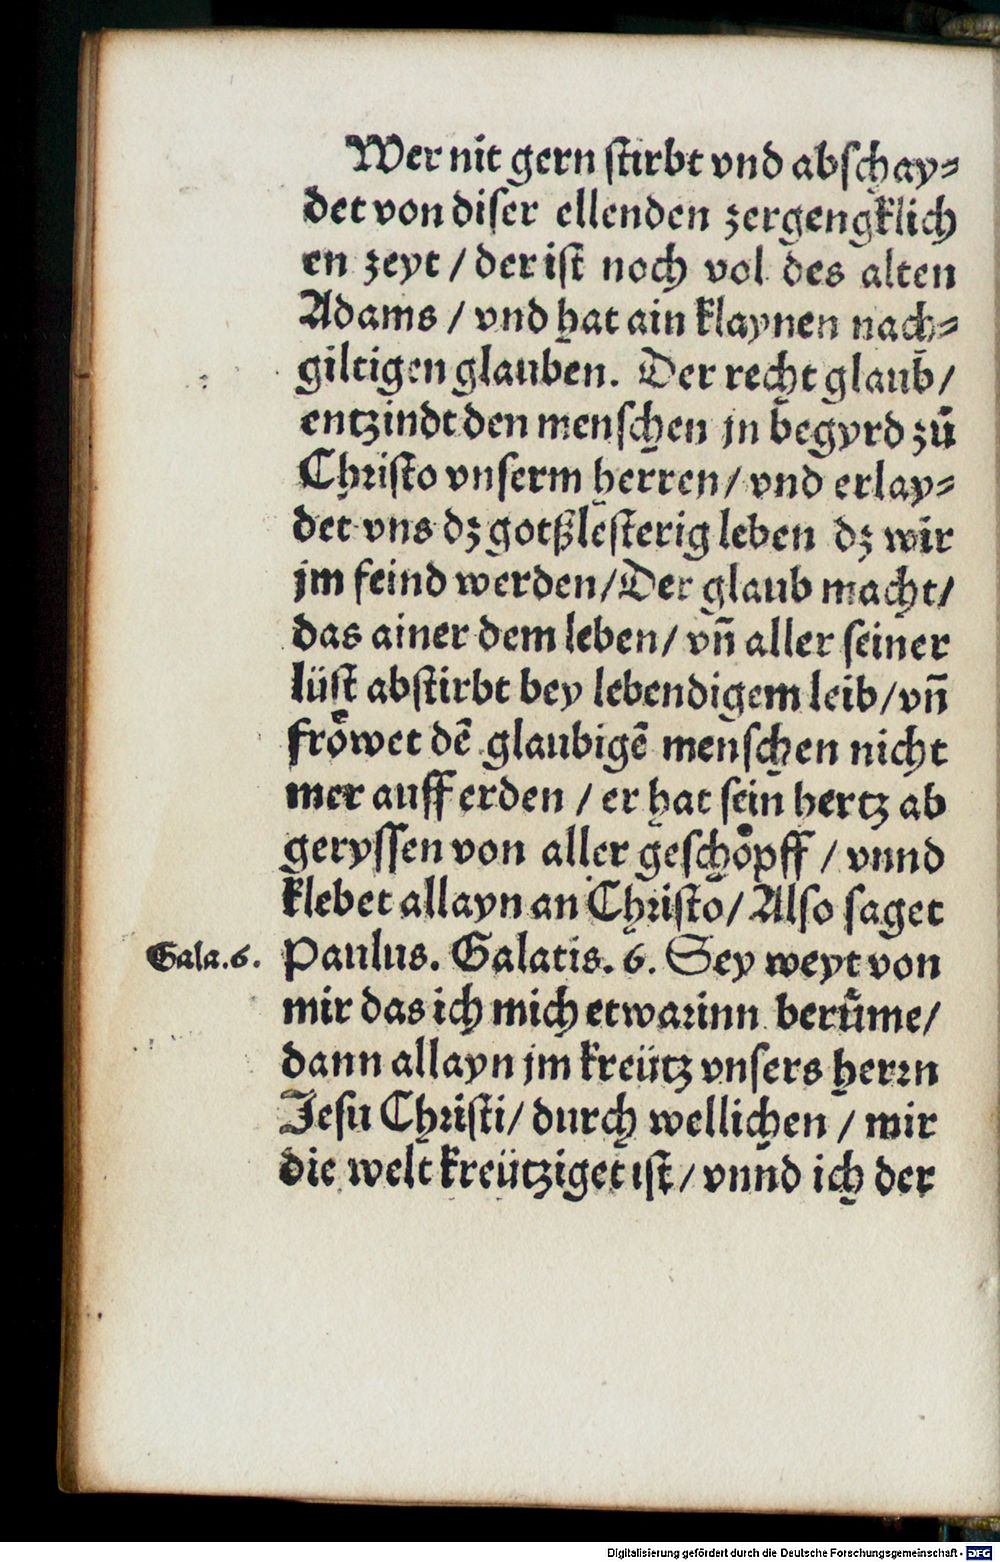 Wer nit gern ſtirbt vnd abſchay⸗
det von diſer ellenden zergengklich
en zeyt / der iſt noch vol des alten
Adams / vnd hat ain klaynen nach⸗
giltigen glauben. Der recht glaub /
entzindt den menſchen jn begyrd zů
Chꝛiſto vnſerm herren / vnd erlay⸗
det vns dz gotßleſterig leben dz wir
jm feind werden / Der glaub macht /
das ainer dem leben / vñ aller ſeiner
lüſt abſtirbt bey lebendigem leib / vñ
froͤwet dẽ glaubigẽ menſchen nicht
mer auff erden / er hat ſein hertz ab
geryſſen von aller geſchoͤpff / vnnd
klebet allayn an Chꝛiſto / Alſo ſaget
Gala.6. Paulus. Galatis. 6. Sey weyt von
mir das ich mich etwaꝛinn berůme /
dann allayn jm kreütz vnſers herꝛn
Jeſu Chꝛiſti / durch wellichen / mir
die welt kreütziget iſt / vnnd ich der
Digitalisierung gefördert durch die Deutsche Forschungsgemeinschaft - DFG